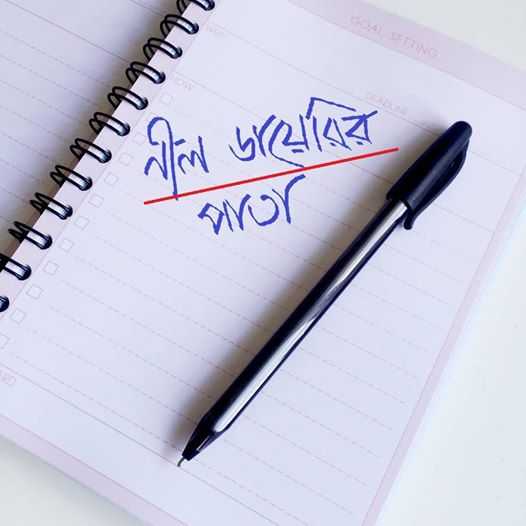 GOAL SETTING
DEADLINE
নীল ডায়েরির
পাতা